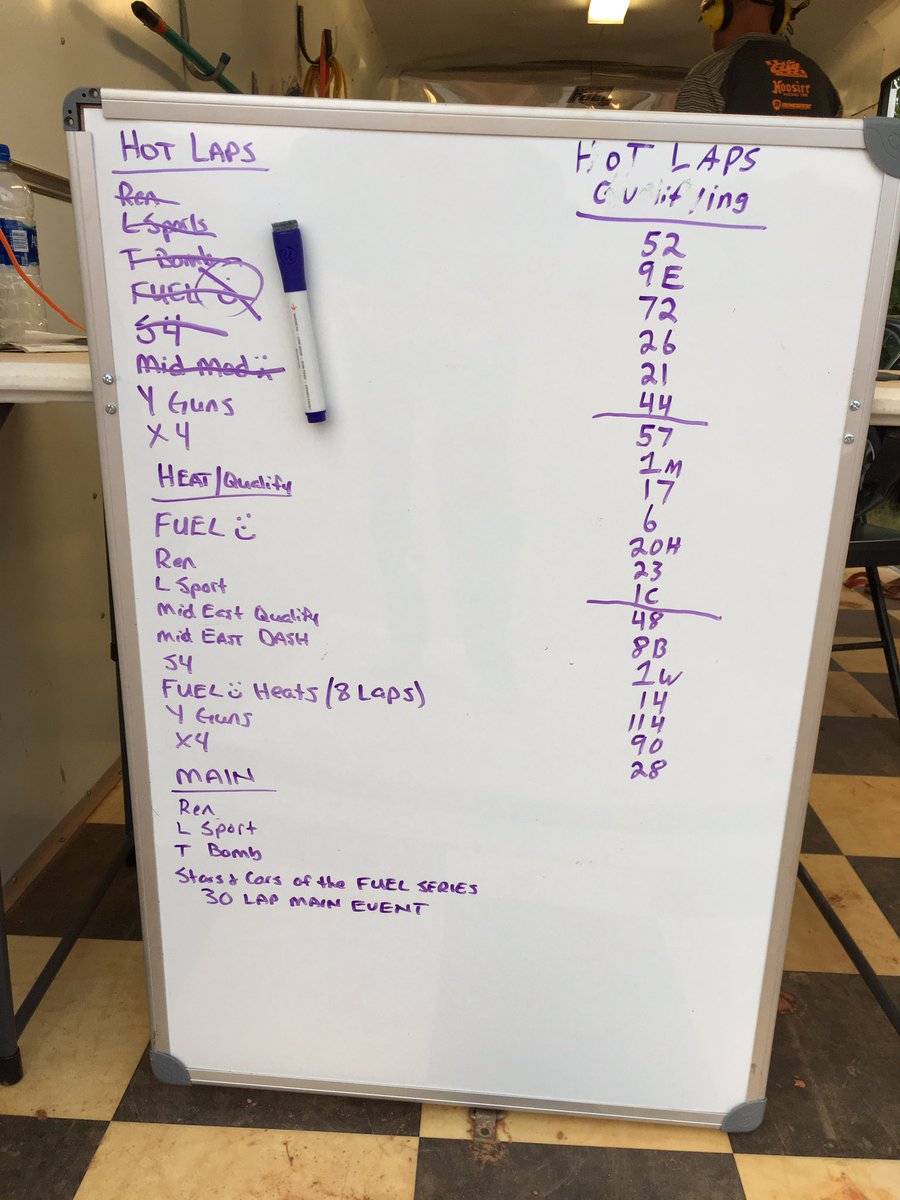 Hoosier
HOT LAPS
Ren
L Sports
T Bomb
FUEL
S4
Mid Mod
Y Guns
X4
HEAT/Qualify
FUEL
Ren
L Sport
Mid East Qualify
Mid EAST DASH
S4
FUEL Heats (8 LAPS)
Y Guns
X4
MAIN
Ren
L Sport
T Bomb
Stars & Cars of the FUEL SERIES
30 LAP MAIN EVENT
HOT LAPS
Qualifying
52
9E
72
26
21
44
57
1M
17
6
20H
23
1C
48
8B
1W
14
114
90
28